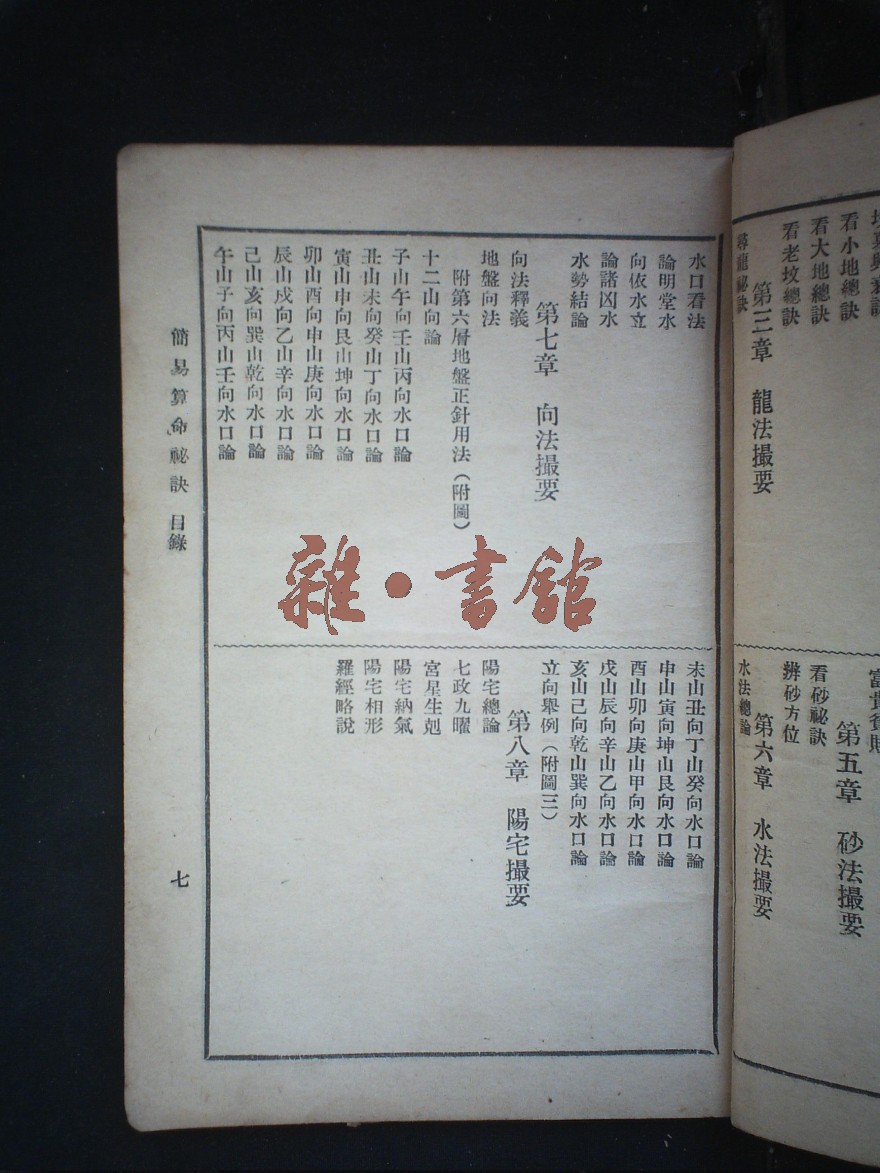 看小地總訣
看大地總訣
看老坟總訣
第三章 龍法撮要
尋龍祕訣
富貴貧賤
第五章 砂法撮要
看砂祕訣
辨砂方位
第六章 水法撮要
水法總論
水口看法
論明堂水
向依水立
論諸凶水
水勢結論
第七章 向法撮要
向法釋義
地盤向法
附第六層地盤正針用法（附圖）
十二山向論
子山午向壬山丙向水口論
丑山未向癸山丁向水口論
寅山申向艮山坤向水口論
卯山酉向申山庚向水口論
辰山戌向乙山辛向水口論
己山亥向巽山乾向水口論
午山子向丙山壬向水口論
未山丑向丁山癸向水口論
申山寅向坤山艮向水口論
酉山卯向庚山甲向水口論
戌山辰向辛山乙向水口論
亥山己向乾山巽向水口論
立向舉例（附圖三）
第八章 陽宅撮要
陽宅總論
七政九曜
宮星生剋
陽宅納氣
陽宅相形
羅經略說
簡易算命祕訣 目錄
七
雜·書館